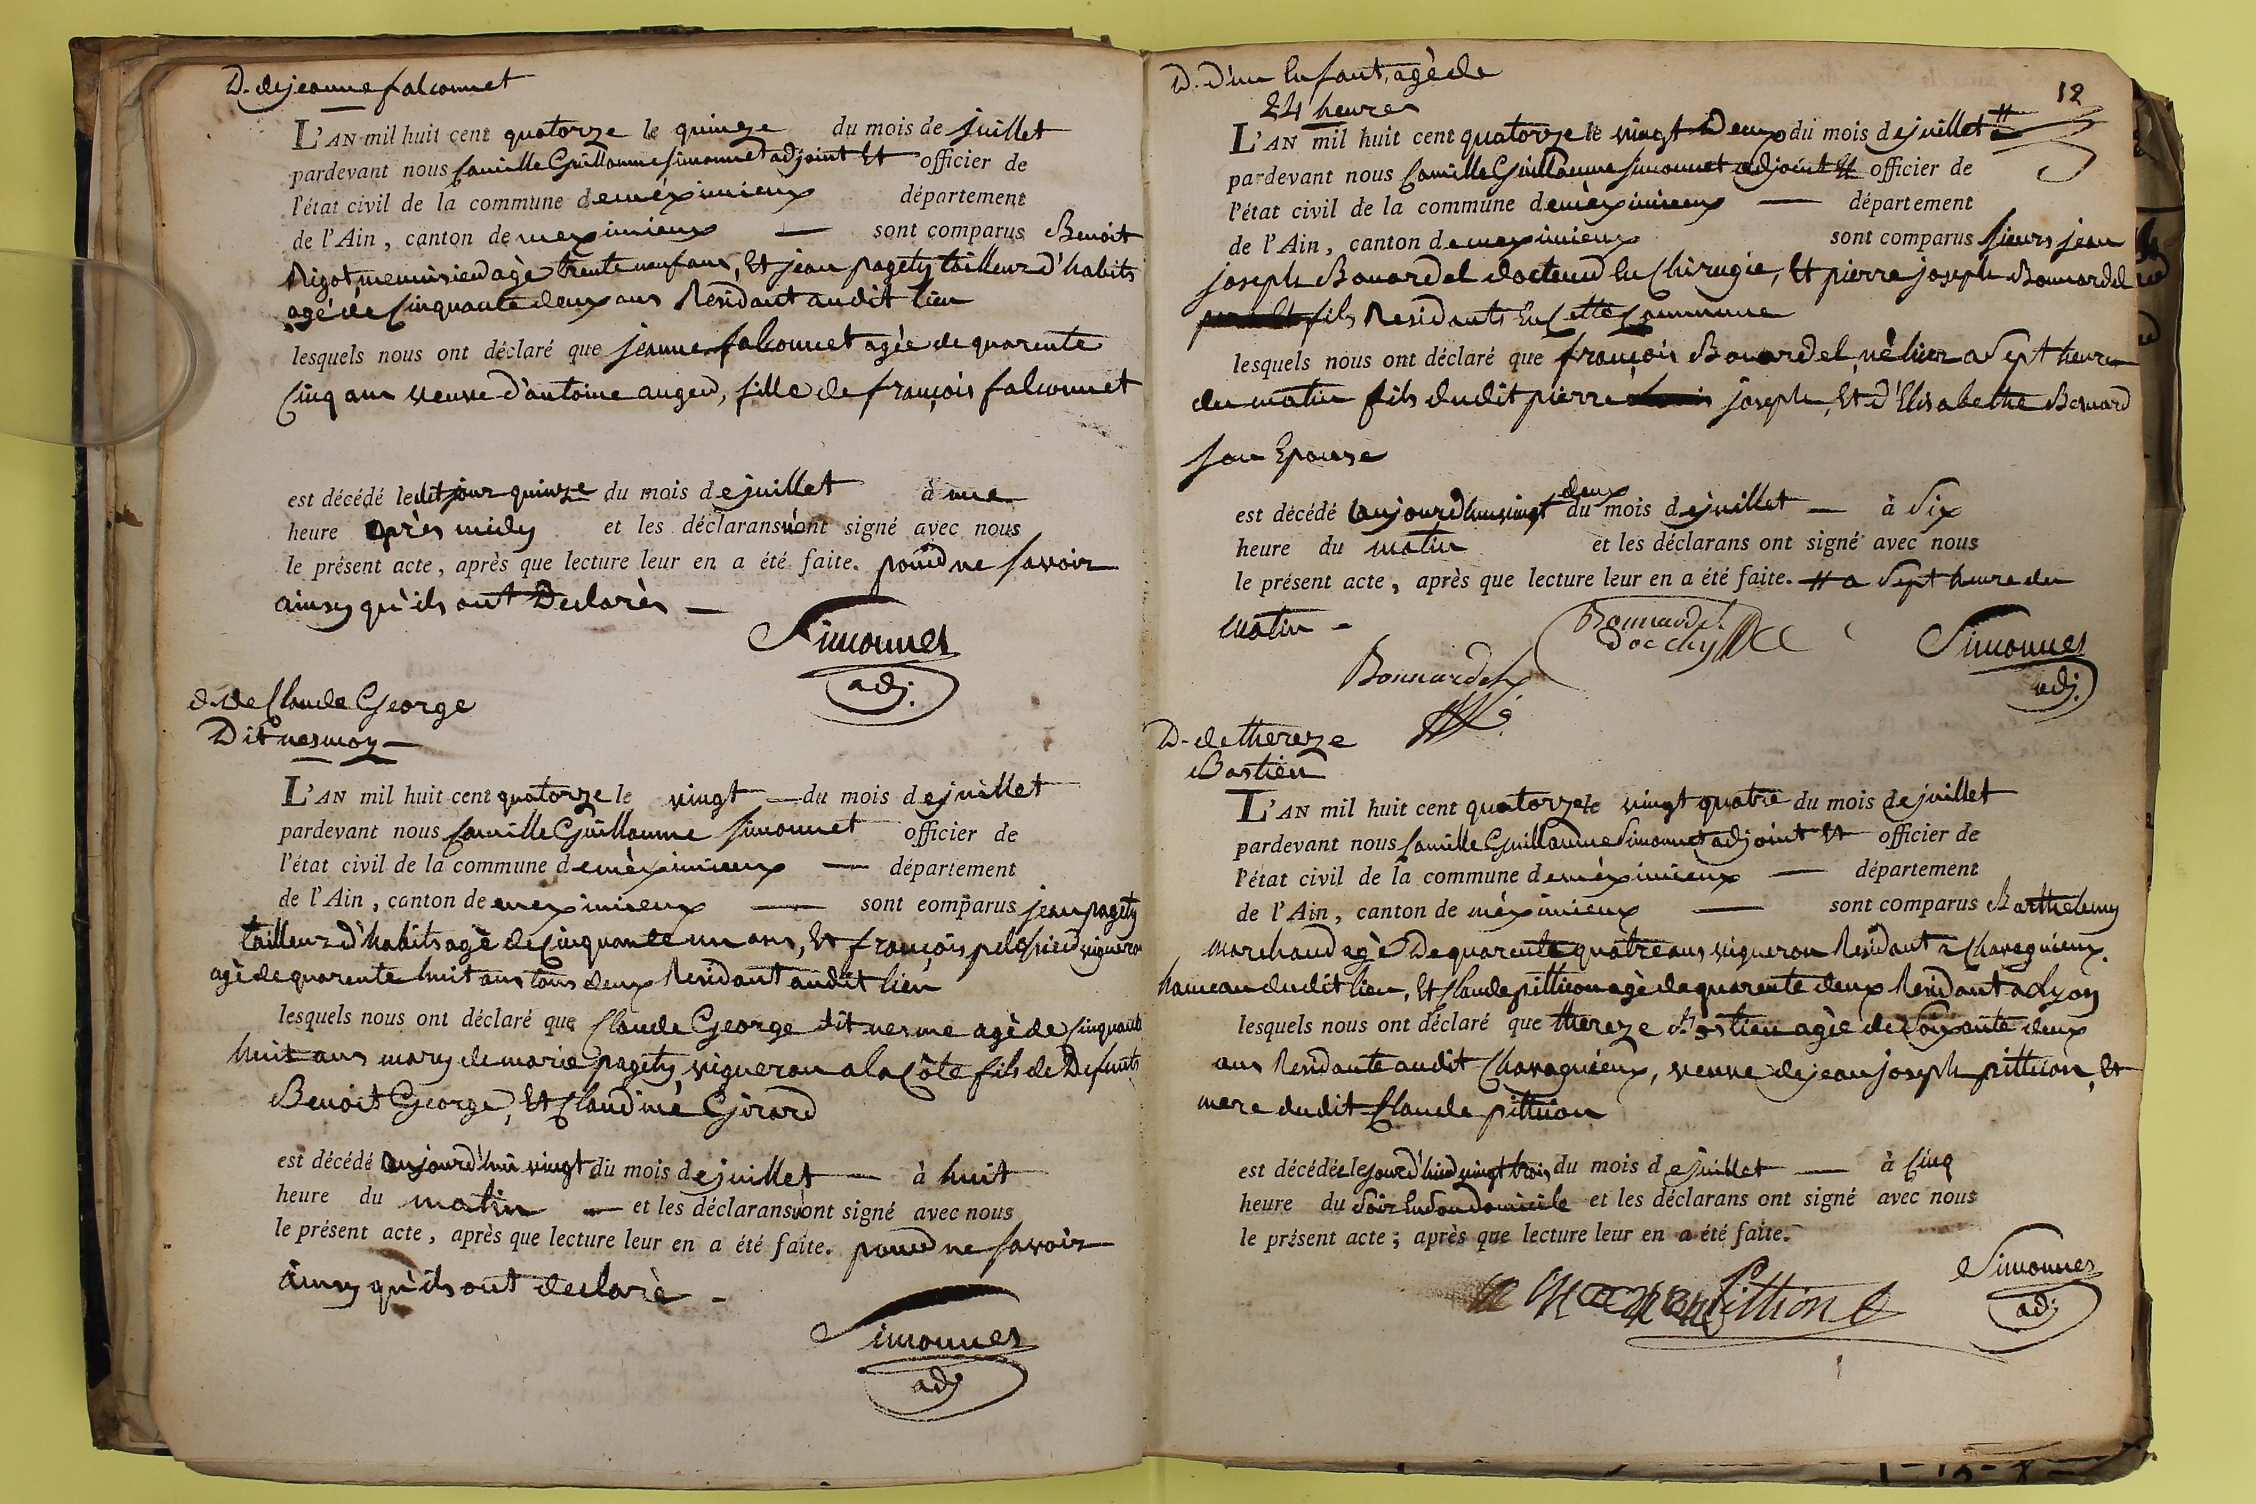 D. de jeanne falconnet
L'AN mil huit cent quatorze le quinze du mois de juillet
pardevant nous Camille Guillaume Simonnet adjoint Et officier de
l'état civil de la commune de méximieux département
de l'Ain, canton de meximieux — sont comparus Benoit
Rigot menuisier agè trente neuf ans, Et jean pagety tailleur d'habits
agé de Cinquante deux ans Residant audit lieu
lesquels nous ont déclaré que jeanne falconnet agèe de quarente
Cinq ans veuve d'antoine auger, fille de françois falconnet
est décédé ledit jour quinze du mois de juillet à une
heure après midy et les déclarans n'ont signé avec nous
le présent acte, après que lecture leur en a été faite. pour ne savoir
ainsy qu'ils ont Declarès —
Simonnet
adj.
d. de Claude George
Dit nesmoz —
L'AN mil huit cent quatorze le vingt — du mois de juillet
pardevant nous Camille Guillaume Simonnet officier de
l'état civil de la commune de mèximieux — département
de l'Ain, canton de meximieux — sont comparus jean pagety
tailleur d'habits agè de Cinquante un ans, Et françois vigneron
agè de quarente huit ans tous deux Residant audit lieu
lesquels nous ont déclaré que Claude George dit nesme agè de Cinquante
huit ans mary de marie pagety, vigneron a la Côte fils de Defunts
Benoit George, Et Claudine Girard
est décédé aujourd'hui vingt du mois de juillet — à huit
heure du matin — et les déclarans n'ont signé avec nous
le présent acte, après que lecture leur en a été faite. pour ne savoir
ainsy qu'ils ont declarè —
Simonnet
adj
D. D'un Enfant, agè de
24 heures
12
L'AN mil huit cent quatorze le vingt Deux du mois de juillet #
pardevant nous Camille Guillaume Simonnet adjoint Et officier de
l'état civil de la commune de mèximieux — département
de l'Ain, canton de meximieux sont comparus sieurs jean
joseph Bonardel docteur En Chirugie, Et pierre joseph Bonnardel
pere Et fils Residants En Cette Commune
lesquels nous ont déclaré que françois Bonardel, nè hier a Sept heure
du matin fils dudit pierre joseph, Et d'Elisabethe Bonard
son Epouse
est décédé aujourd'hui vingt deux du mois de juillet — à Six
heure du matin et les déclarans ont signé avec nous
le présent acte, après que lecture leur en a été faite. # a Sept heure du
matin —
Bonnardel
Bonnardel
Simonnet
adj.
D. de thereze
Bastien
L'AN mil huit cent quatorze le vingt quatre du mois de juillet
pardevant nous Camille Guillaume Simonnet adjoint Et officier de
l'état civil de la commune de mèximieux — département
de l'Ain, canton de mèximieux — sont comparus Barthelemy
marchand agè De quarente quatre ans vigneron Residant a Chavagnieux
hameau dudit lieu, Et Claude pittion agè de quarente deux Residant a Lyon
lesquels nous ont déclaré que thereze Bastien agèe de Soixante deux
ans Residante audit Chavagnieux, veuve de jean joseph pittion, Et
mere dudit Claude pittion
est décédée le jour d'hier vingt trois du mois de juillet — à Cinq
heure du Soir En Son domicile et les déclarans ont signé avec nous
le présent acte; après que lecture leur en a été faite.
Pittion
Simonnet
adj